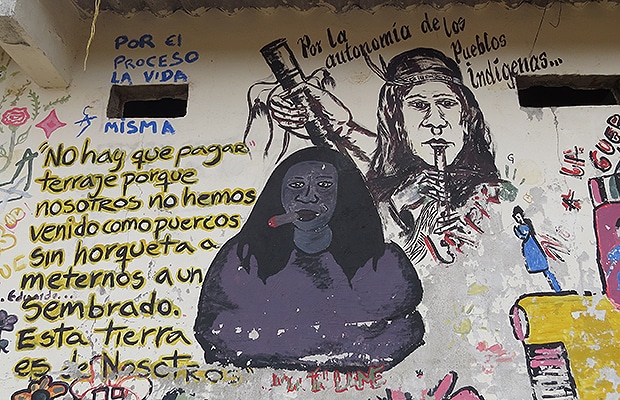 POR EL
PROCESO
LA VIDA
MISMA
Por la
autonomía de los
Pueblos
indígenas...
"NO hay que pagar
terraje porque
nosotros no hemos
venido como puercos
sin horqueta a
meternos a un
Sembrado.
Esta tierra
es de Nosotros"
Eduardo...